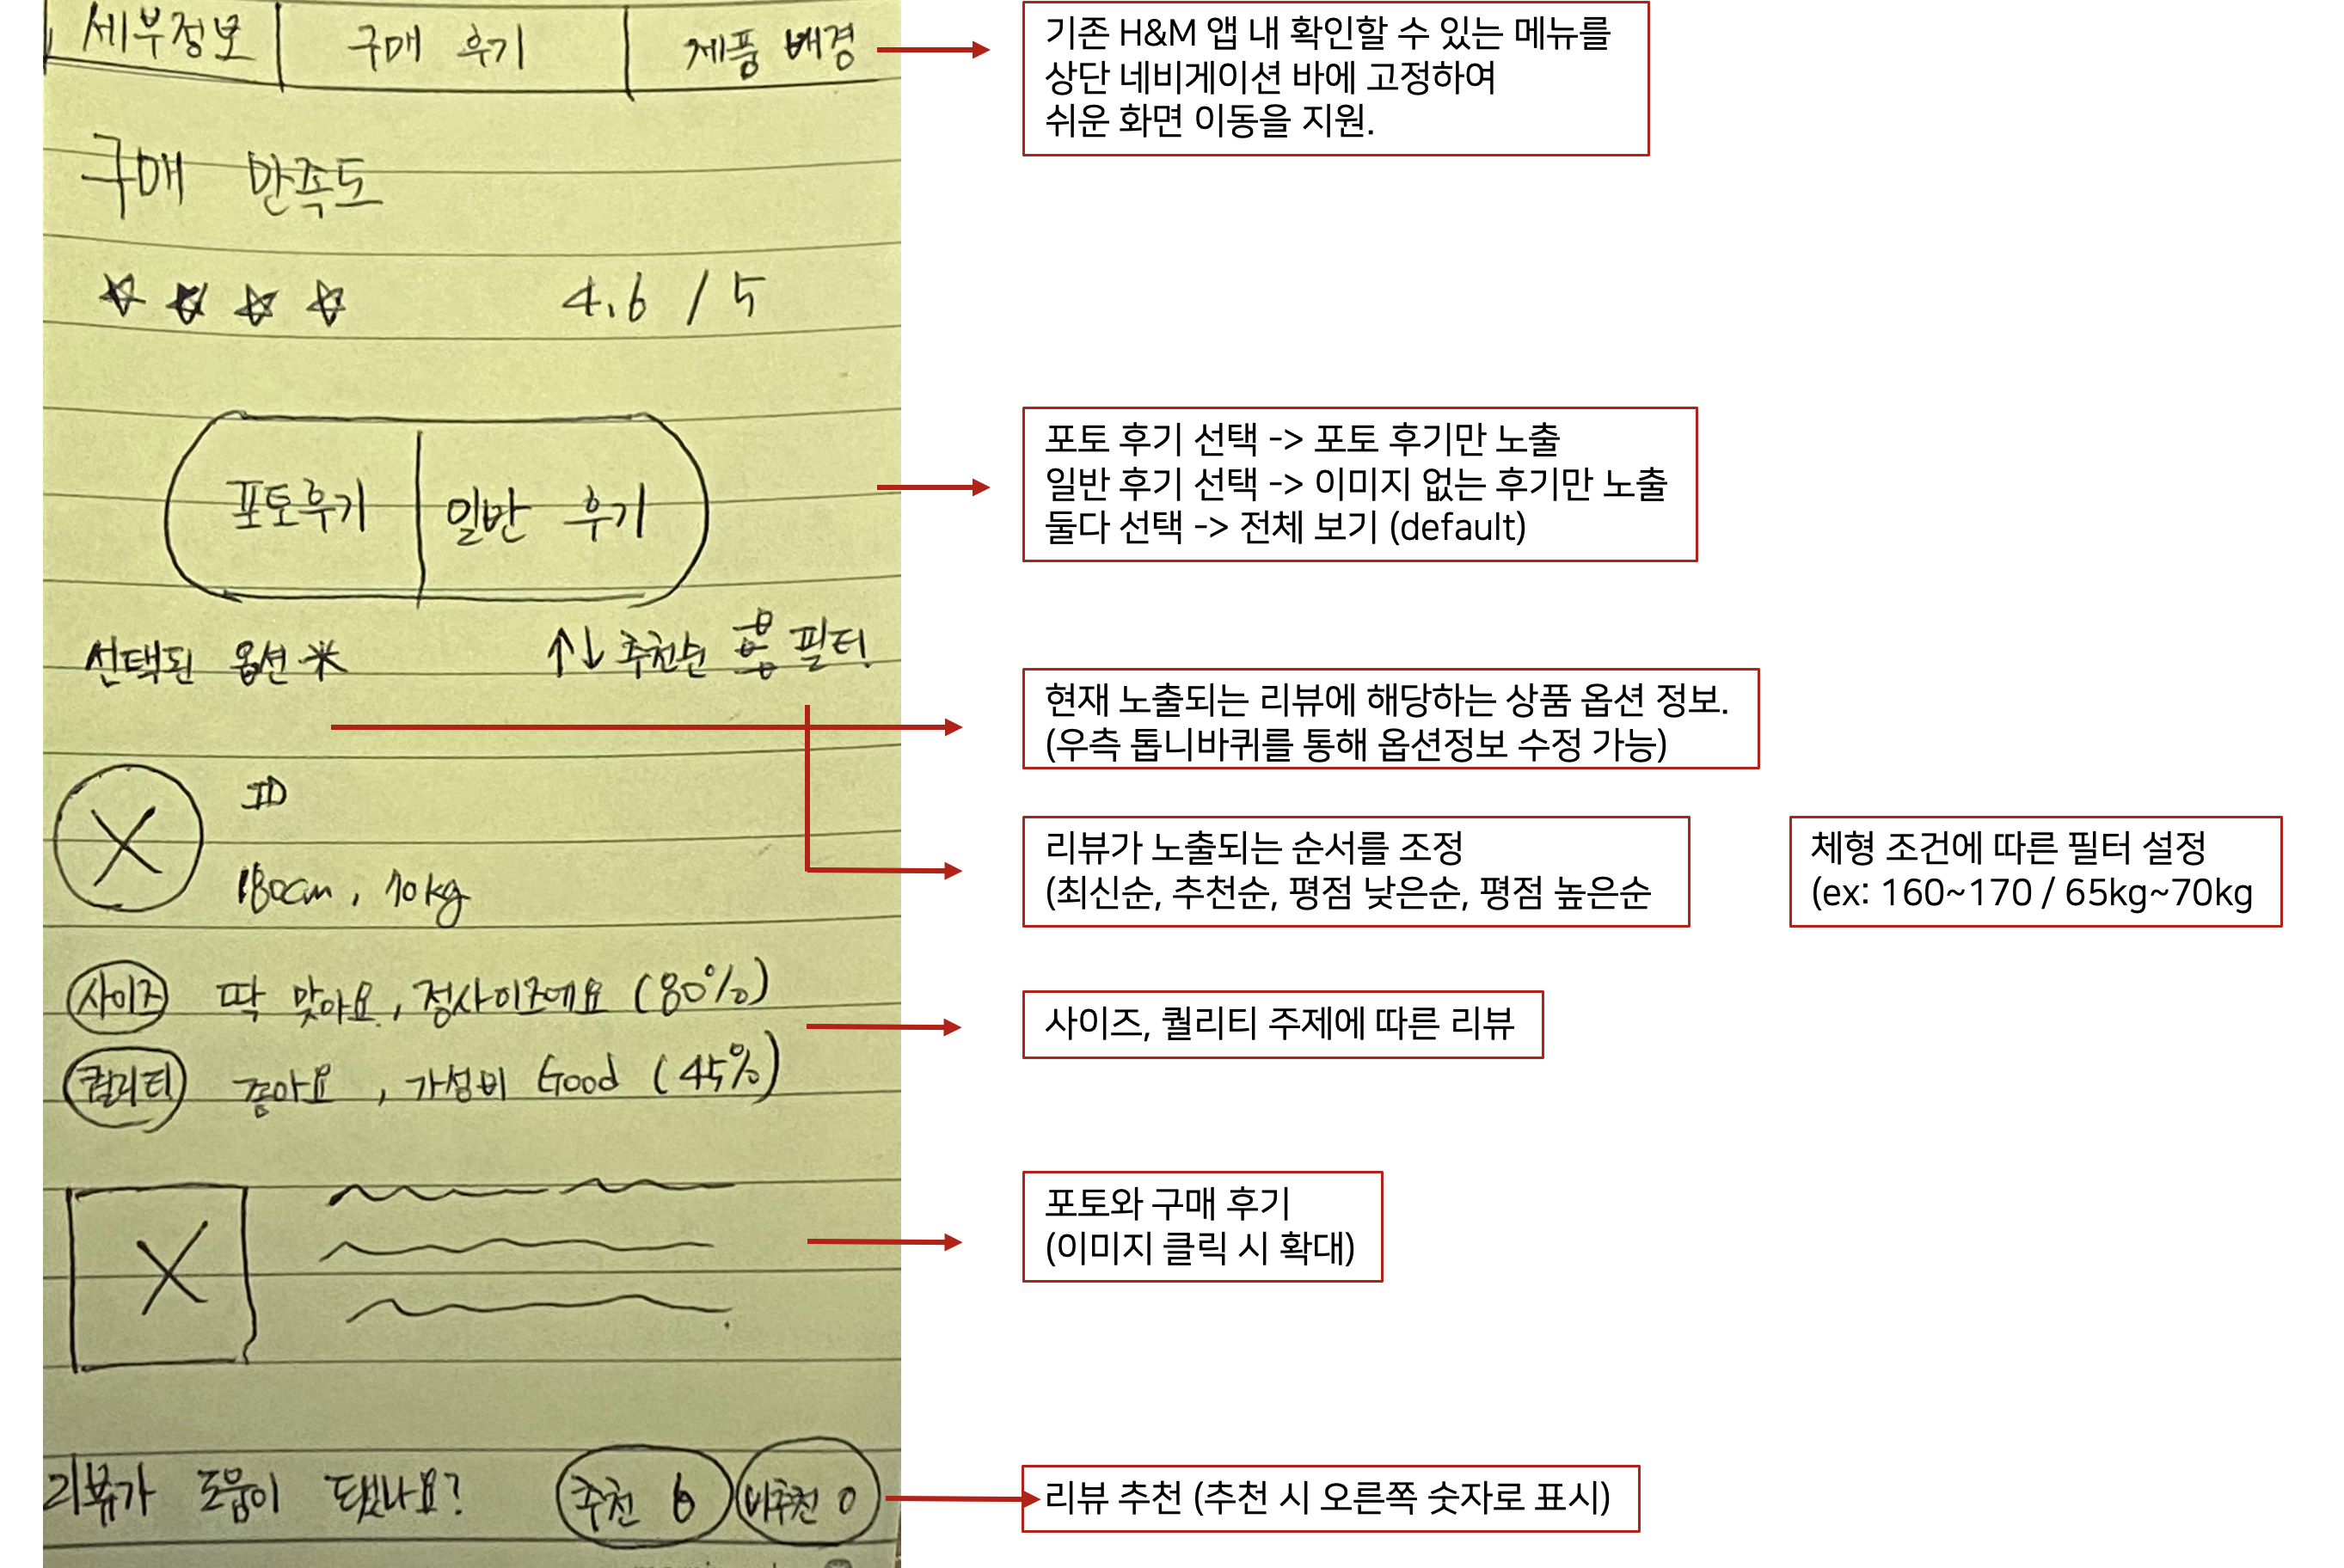 세부정보
구매 후기
제품 배경
기존 H&M 앱 내 확인할 수 있는 메뉴를
상단 네비게이션 바에 고정하여
쉬운 화면 이동을 지원.
구매 만족도
4.6 / 5
포토후기
일반 후기
포토 후기 선택 -> 포토 후기만 노출
일반 후기 선택 -> 이미지 없는 후기만 노출
둘다 선택 -> 전체 보기 (default)
선택된 옵션
↑↓ 추천순
필터
현재 노출되는 리뷰에 해당하는 상품 옵션 정보.
(우측 톱니바퀴를 통해 옵션정보 수정 가능)
ID
180cm, 70kg
리뷰가 노출되는 순서를 조정
(최신순, 추천순, 평점 낮은순, 평점 높은순
체형 조건에 따른 필터 설정
(ex: 160~170 / 65kg~70kg
사이즈 딱 맞아요, 정사이즈에요 (80%)
퀄리티 좋아요, 가성비 Good (45%)
사이즈, 퀄리티 주제에 따른 리뷰
포토와 구매 후기
(이미지 클릭 시 확대)
리뷰가 도움이 됐나요?
추천 6
비추천 0
리뷰 추천 (추천 시 오른쪽 숫자로 표시)